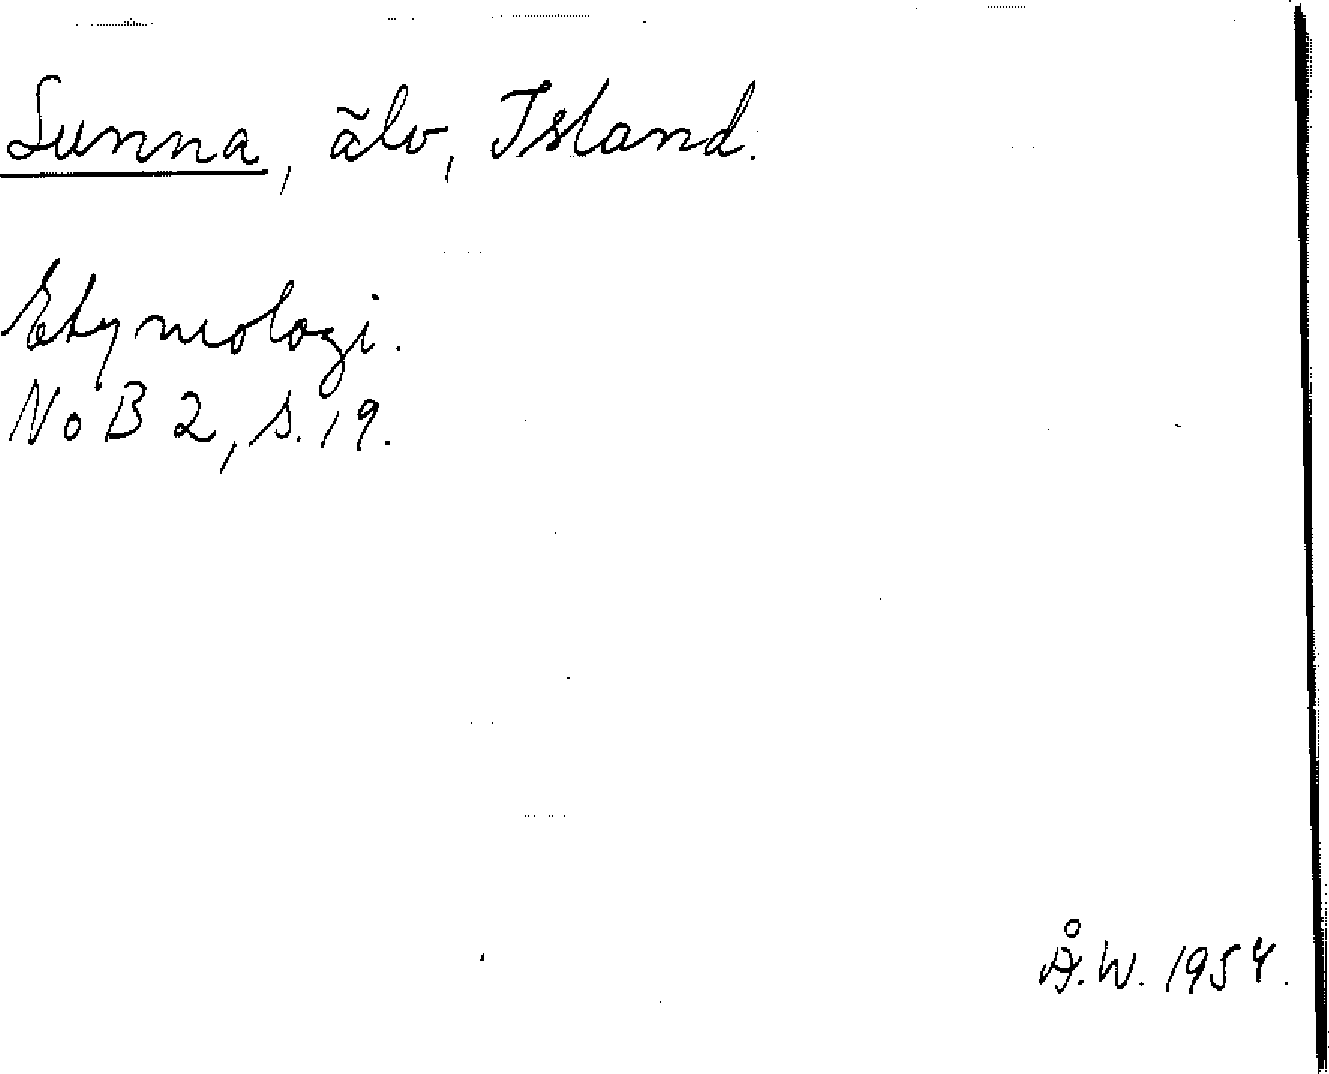 Lunna, älv, Island.
Etymologi.
NoB 2, s. 19.
Å.W. 1954.